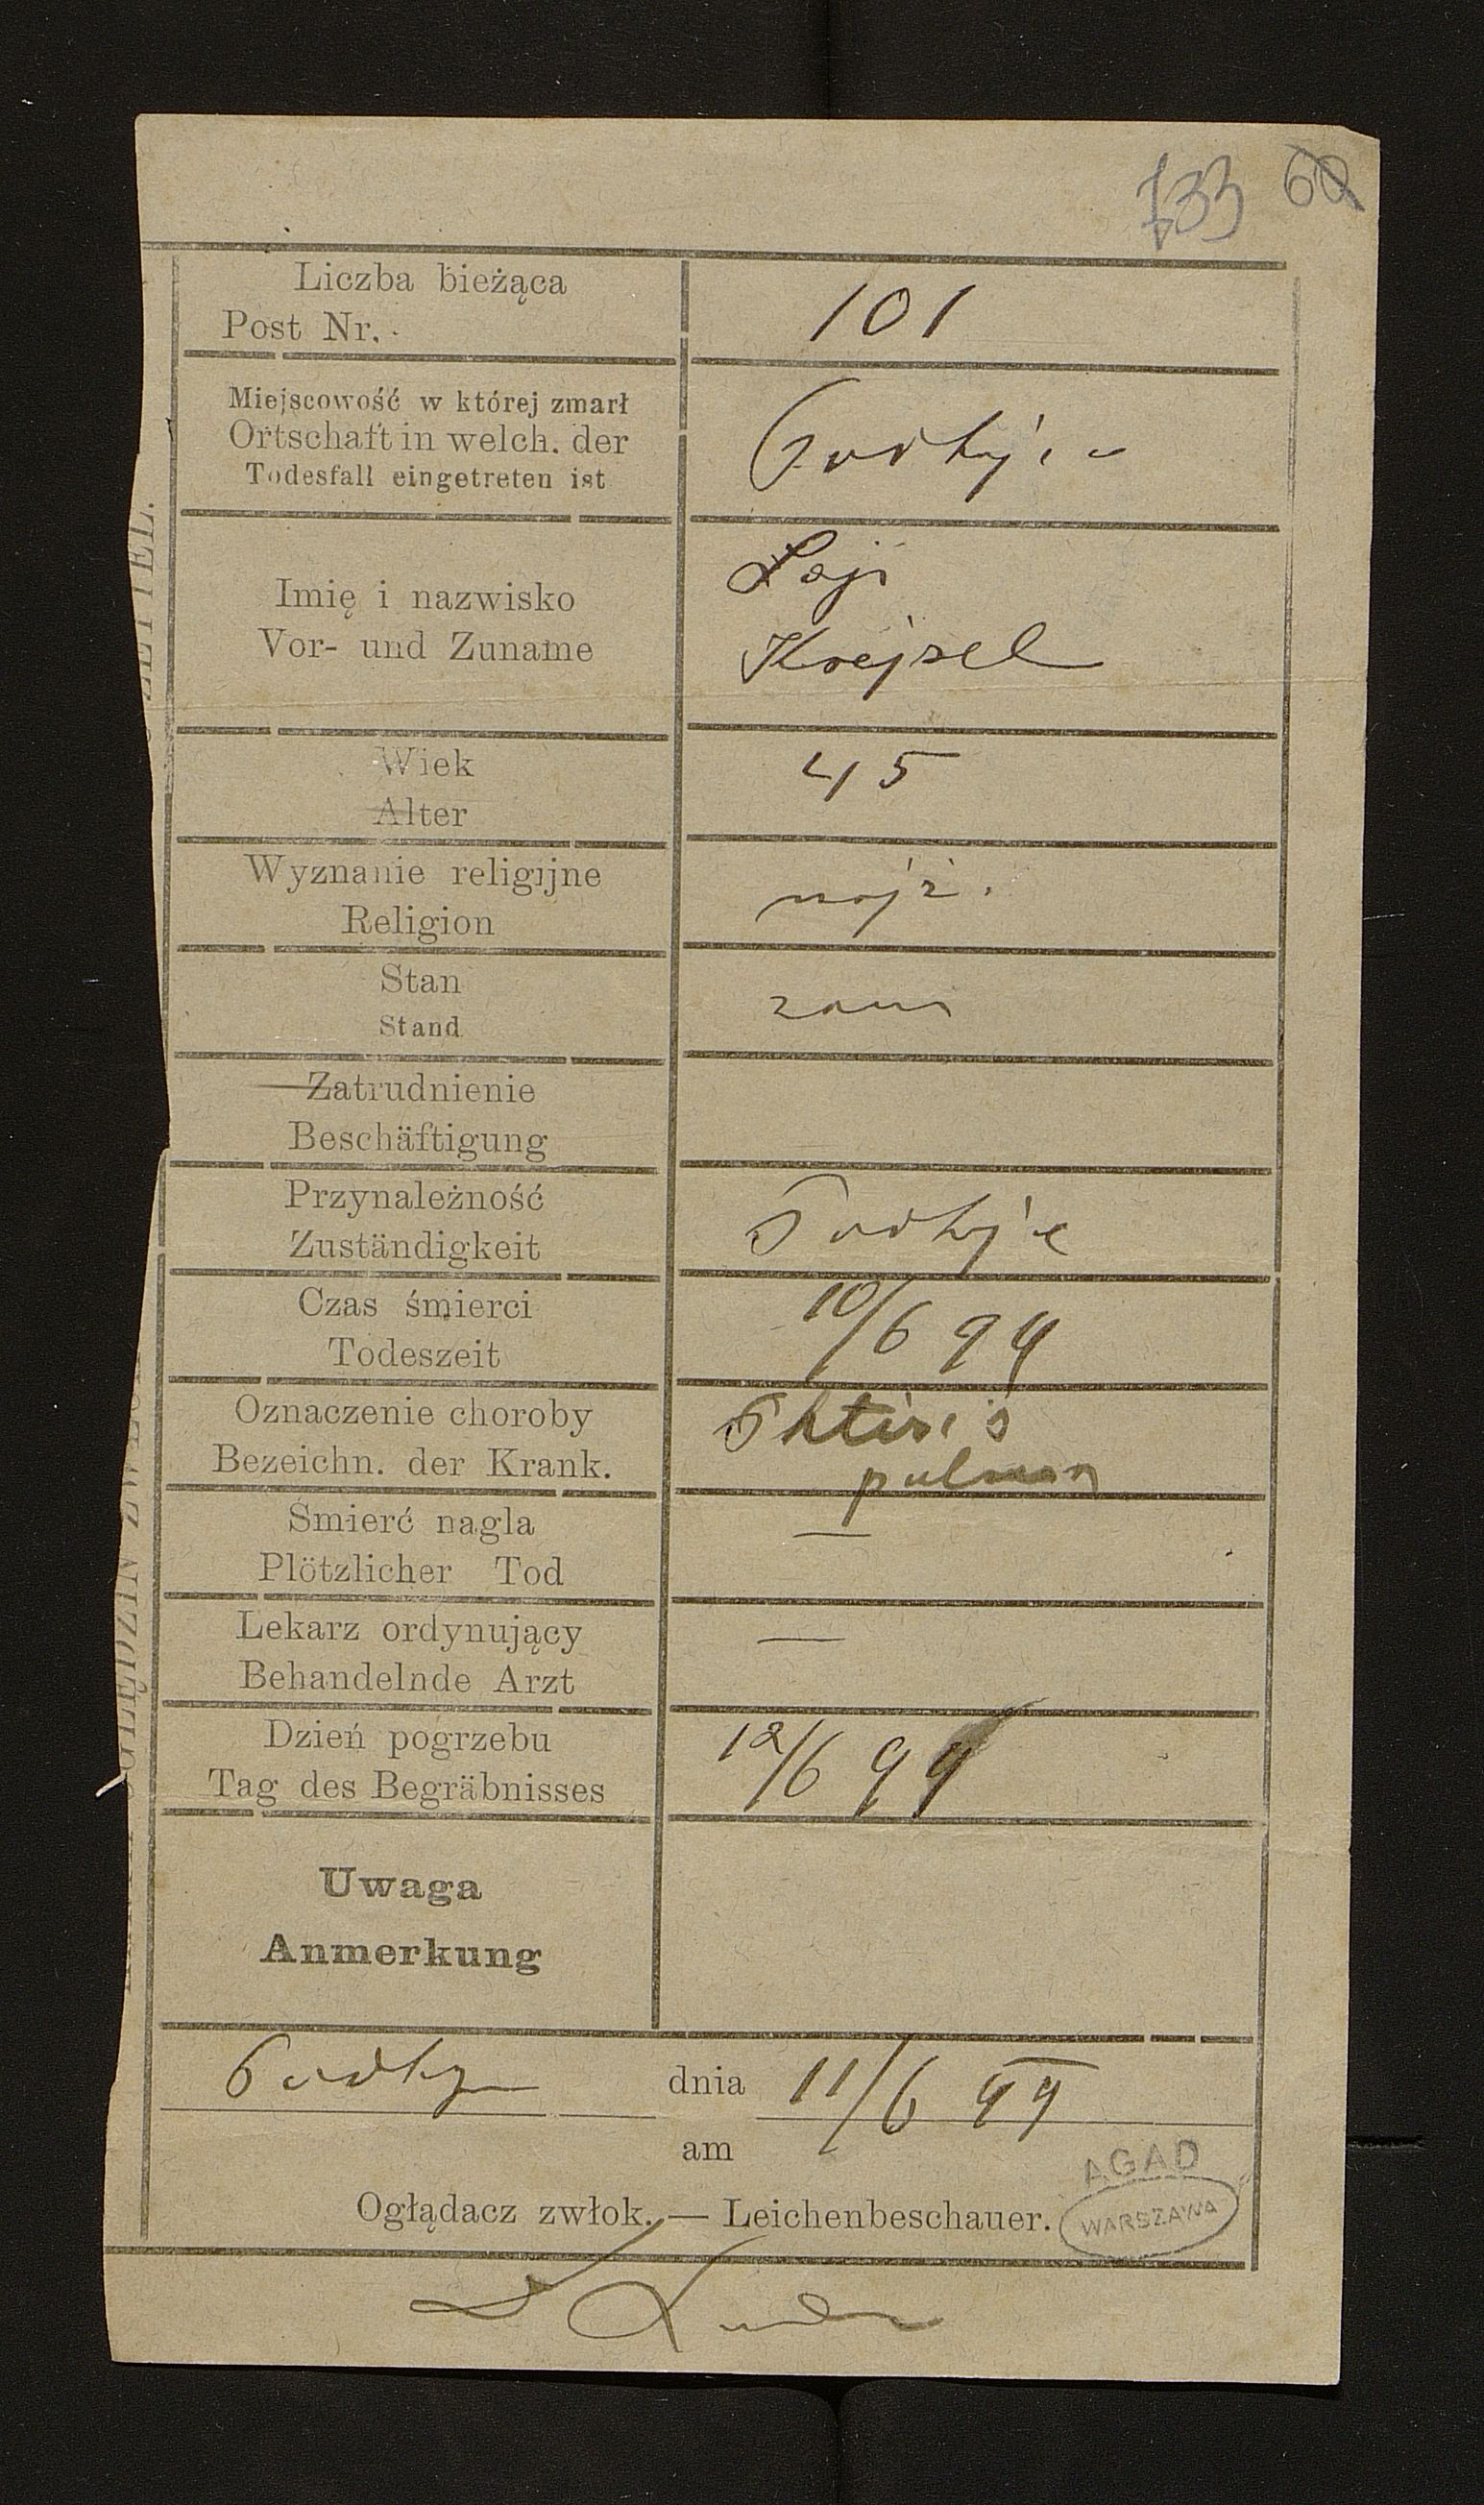 733 60
Liczba bieżąca
Post Nr.
101
Miejscowość w której zmarł
Ortschaft in welch. der
Todesfall eingetreten ist
Imię i nazwisko
Vor- und Zuname
Krejsel
Wiek
Alter
45
Wyznanie religijne
Religion
mojż.
Stan
Stand
zam
Zatrudnienie
Beschäftigung
Przynależność
Zuständigkeit
Czas śmierci
Todeszeit
10/6 94
Oznaczenie choroby
Bezeichn. der Krank.
Phtisis
pulmon
Śmierć nagla
Plötzlicher Tod
—
Lekarz ordynujący
Behandelnde Arzt
—
Dzień pogrzebu
Tag des Begräbnisses
12/6 94
Uwaga
Anmerkung
dnia 11/6 94
am
AGAD
WARSZAWA
Oglądacz zwłok. — Leichenbeschauer.